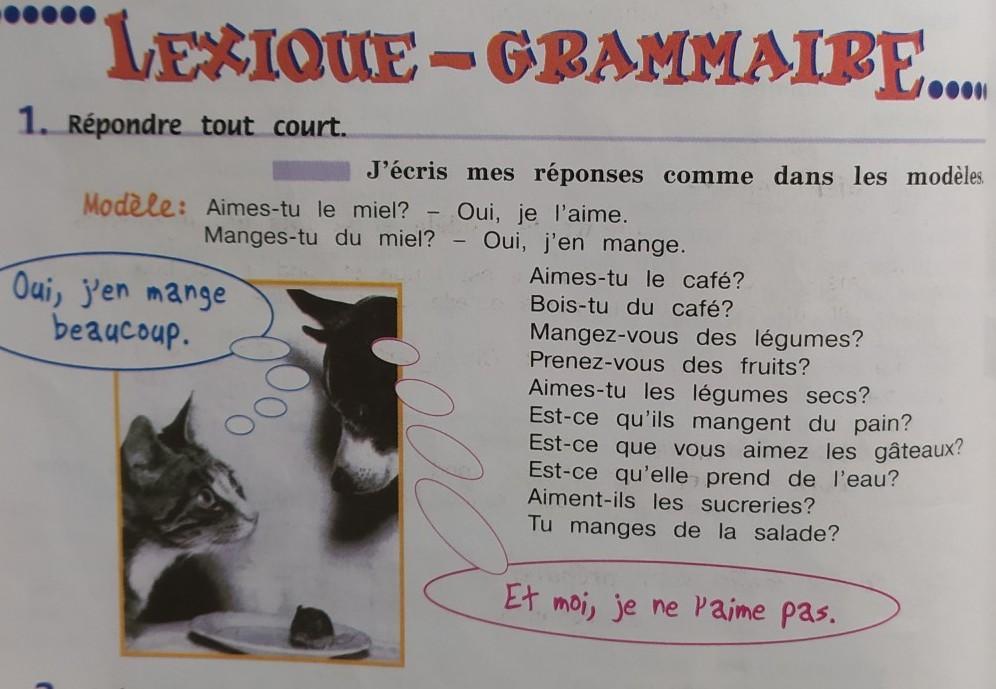 LEXIQUE – GRAMMAIRE
1. Répondre tout court.
J'écris mes réponses comme dans les modèles.
Modèle: Aimes-tu le miel? – Oui, je l'aime.
Manges-tu du miel? – Oui, j'en mange.
Oui, j'en mange
beaucoup.
Aimes-tu le café?
Bois-tu du café?
Mangez-vous des légumes?
Prenez-vous des fruits?
Aimes-tu les légumes secs?
Est-ce qu'ils mangent du pain?
Est-ce que vous aimez les gâteaux?
Est-ce qu'elle prend de l'eau?
Aiment-ils les sucreries?
Tu manges de la salade?
Et moi, je ne l'aime pas.